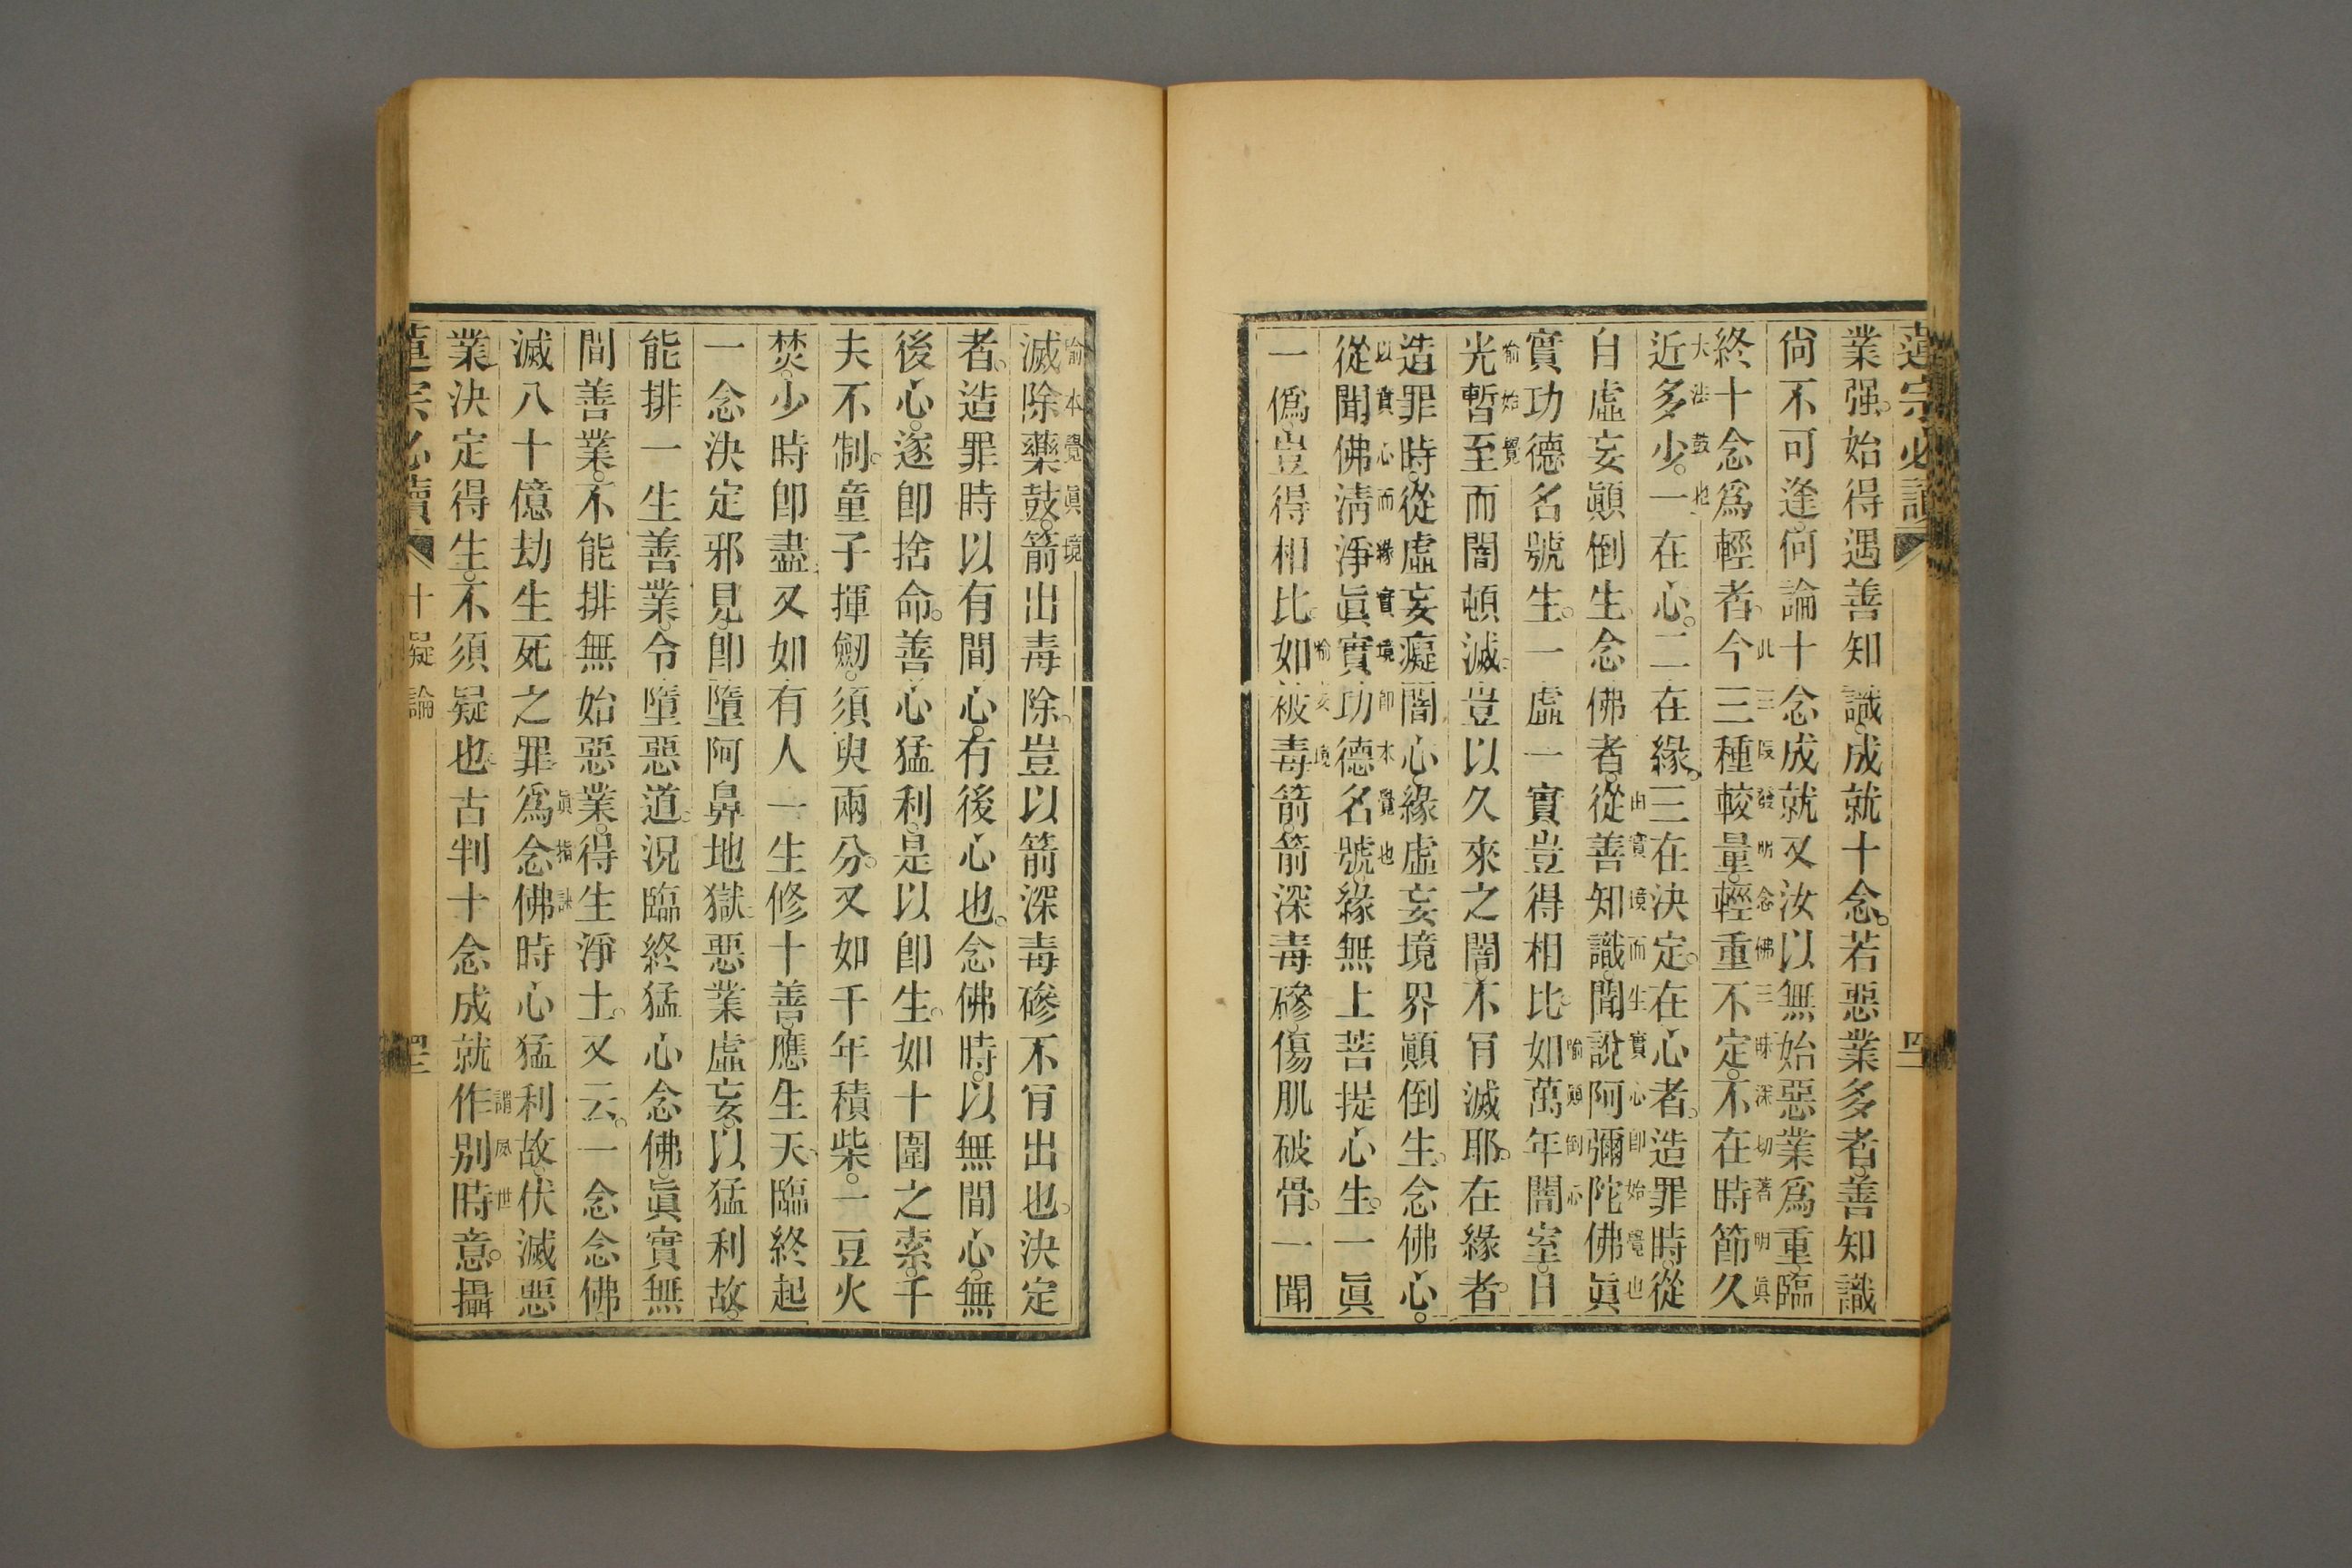 蓮宗必讀
業强始得遇善知識成就十念若惡業多者善知識
尚不可逢何論十念成就又汝以無始惡業爲重臨
終十念爲輕者今三種較量輕重不定不在時節久
此三段發所念佛三昧深切著明眞
近多少一在心二在緣三在決定在心者造罪時從
大法鼓也
自虛妄顚倒生念佛者從善知識聞說阿彌陀佛眞
由實境而生實心即始覺也
實功德名號生一虛一實豈得相比如萬年闇室日
喻顚倒心
光暫至而闇頓滅豈以久來之闇不肯滅耶在緣者
喻始覺
造罪時從虛妄癡闇心緣虛妄境界顚倒生念佛心
從聞佛淸淨眞實功德名號緣無上菩提心生一眞
以實心而緣實境即本覺也
一僞豈得相比如被毒箭箭深毒磣傷肌破骨一聞
喻妄境
滅除藥鼓箭出毒除豈以箭深毒磣不肯出也決定
喻本覺眞境
者造罪時以有間心有後心也念佛時以無間心無
後心遂即捨命善心猛利是以即生如十圍之索千
夫不制童子揮劒須臾兩分又如千年積柴一豆火
焚少時即盡又如有人一生修十善應生天臨終起
一念決定邪見即墮阿鼻地獄惡業虛妄以猛利故
能排一生善業令墮惡道況臨終猛心念佛眞實無
間善業不能排無始惡業得生淨土又云一念念佛
滅八十億劫生死之罪爲念佛時心猛利故伏滅惡
眞指訣
業決定得生不須疑也古判十念成就作別時意攝
謂夙世
蓮宗必讀 十疑論